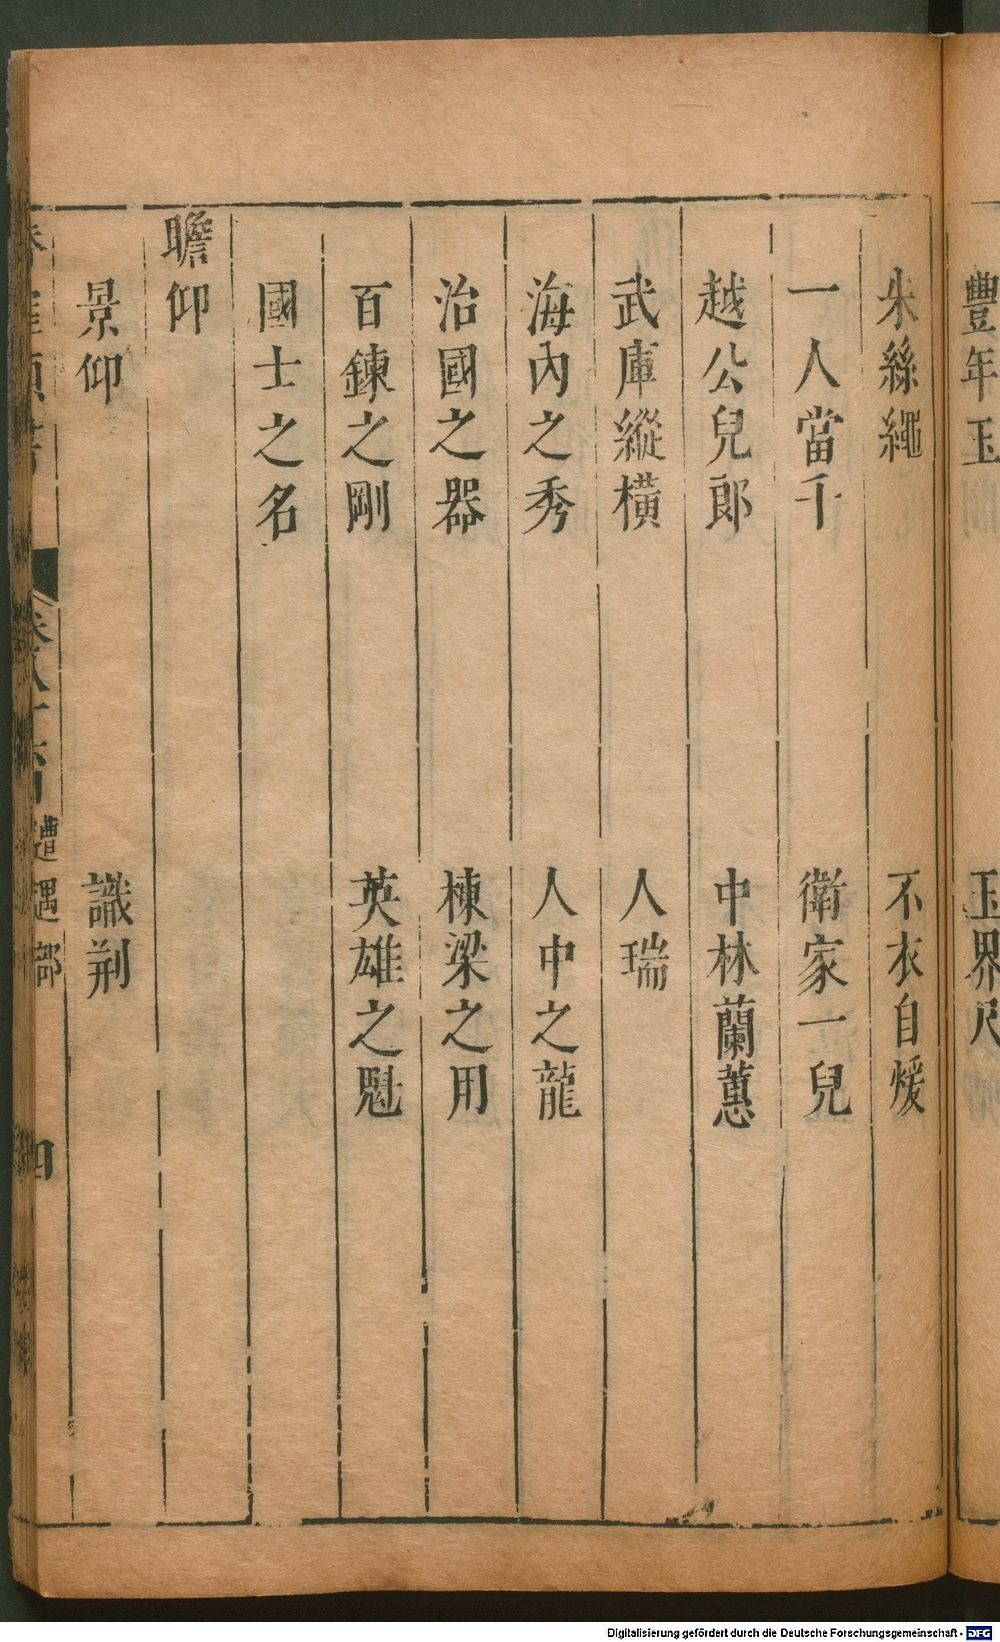 豐年玉 玉界尺
朱絲繩 不衣自煖
一人當千 衛家一兒
越公兒郎 中林蘭蕙
武庫縱橫 人瑞
海內之秀 人中之龍
治國之器 棟梁之用
百鍊之剛 英雄之魁
國士之名
瞻仰
景仰 識荆
遭遇部 四
Digitalisierung gefördert durch die Deutsche Forschungsgemeinschaft - DFG